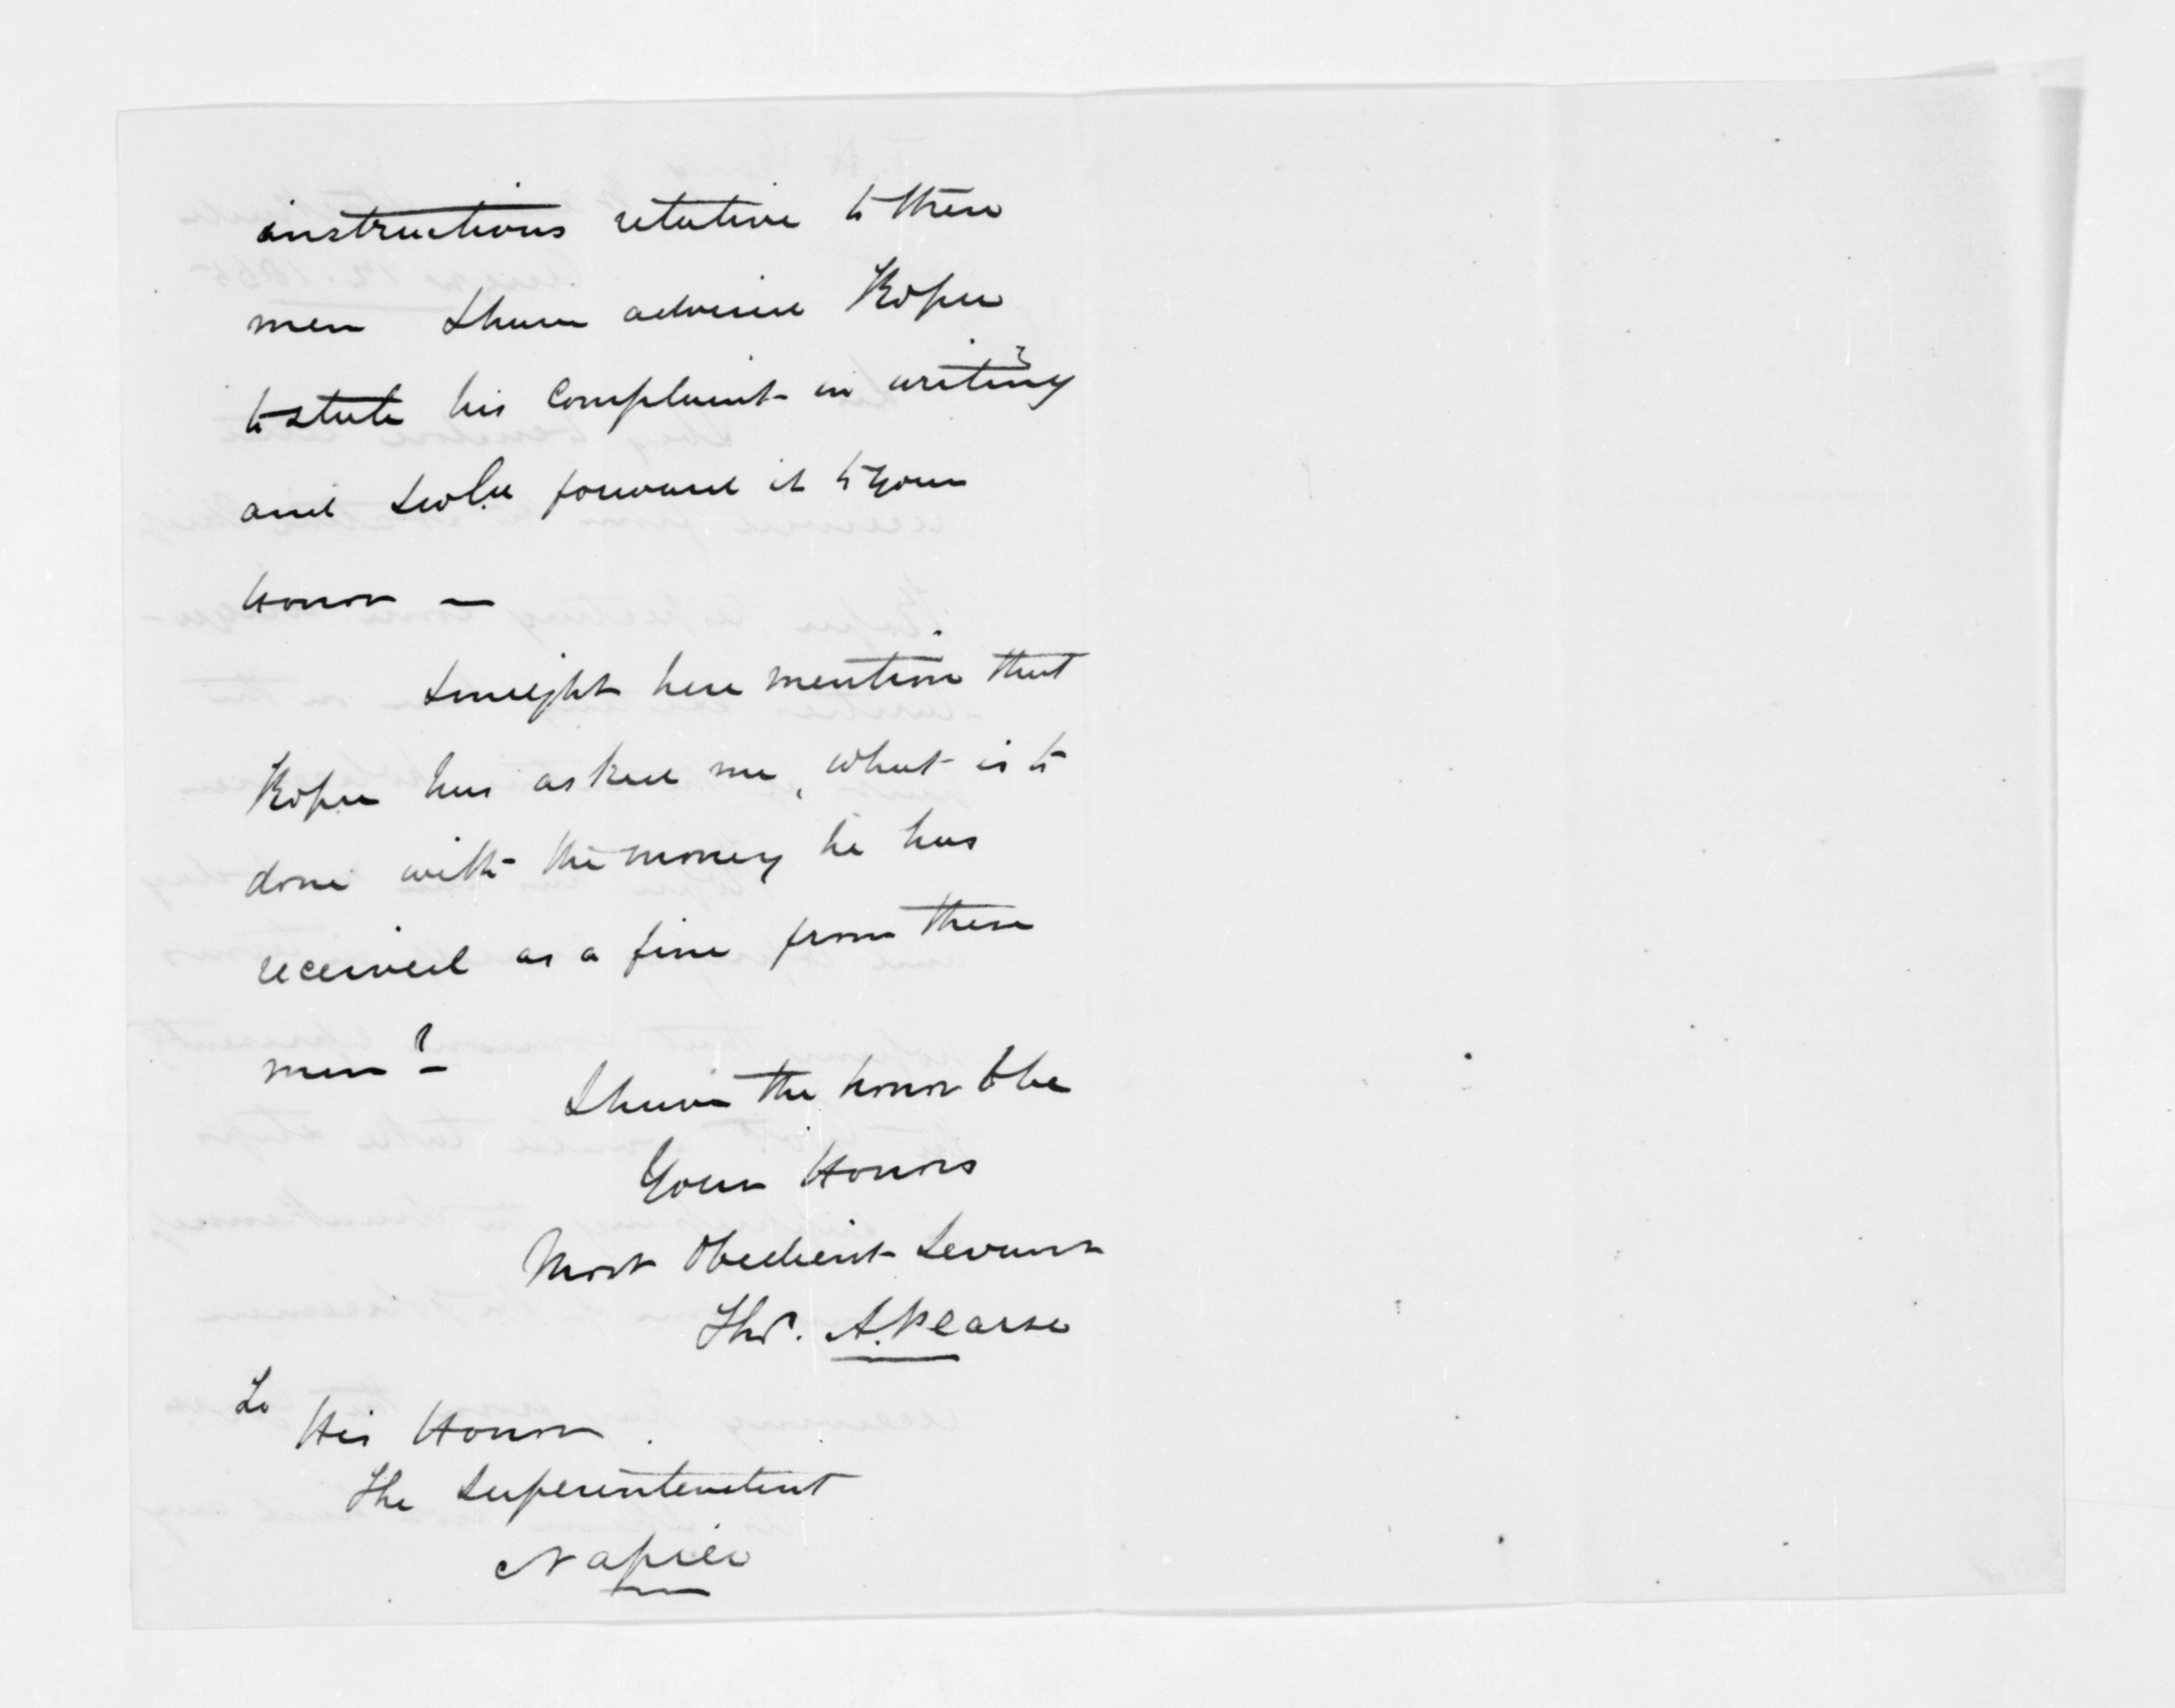 instructions relative to these
men I have advised Kopu
to state his complaint in writing
and I will forward it to your
Honor —
I might here mention that
Kopu has asked me, what is to
done with the money he has
received as a fine from these
men? —
I have the honor to be
Your Honors
Most Obedient Servant
Thos. A. Pearse
To
His Honor
The Superintendent
Napier